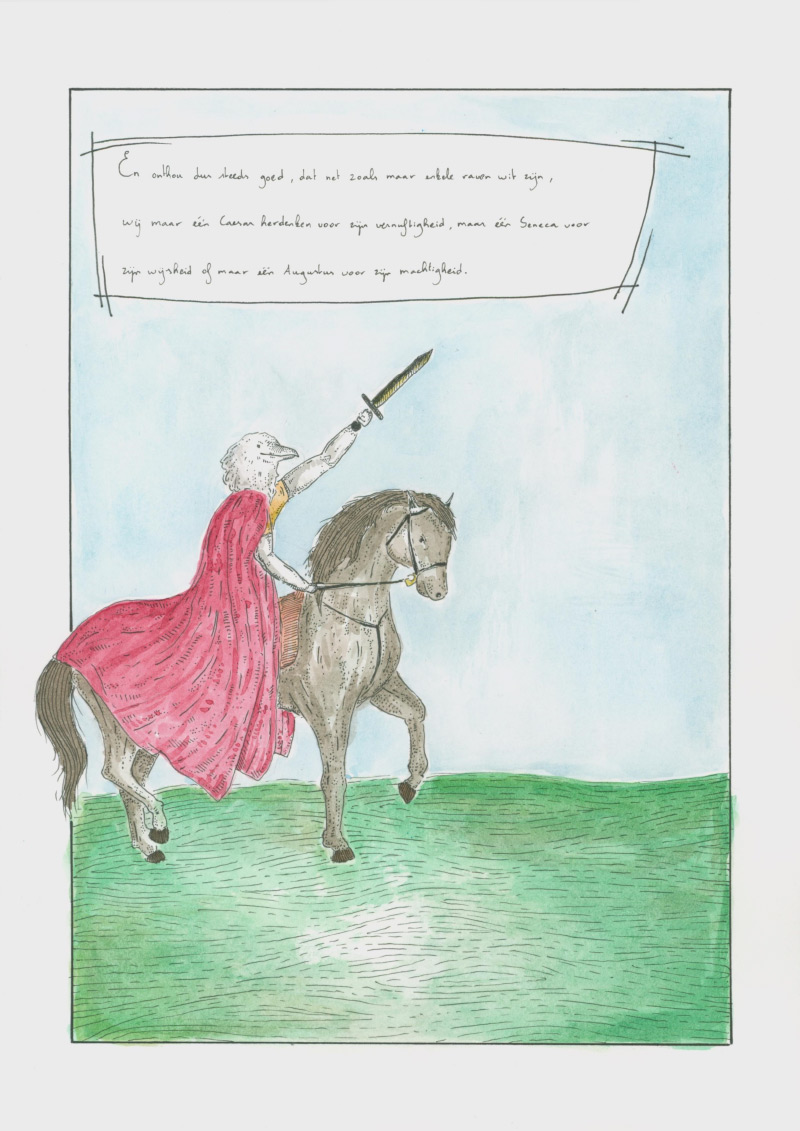 En onthou dus steeds goed, dat net zoals maar enkele raven wit zijn,
wij maar één Caesar herdenken voor zijn vernuftigheid, maar één Seneca voor
zijn wijsheid of maar één Augustus voor zijn machtigheid.